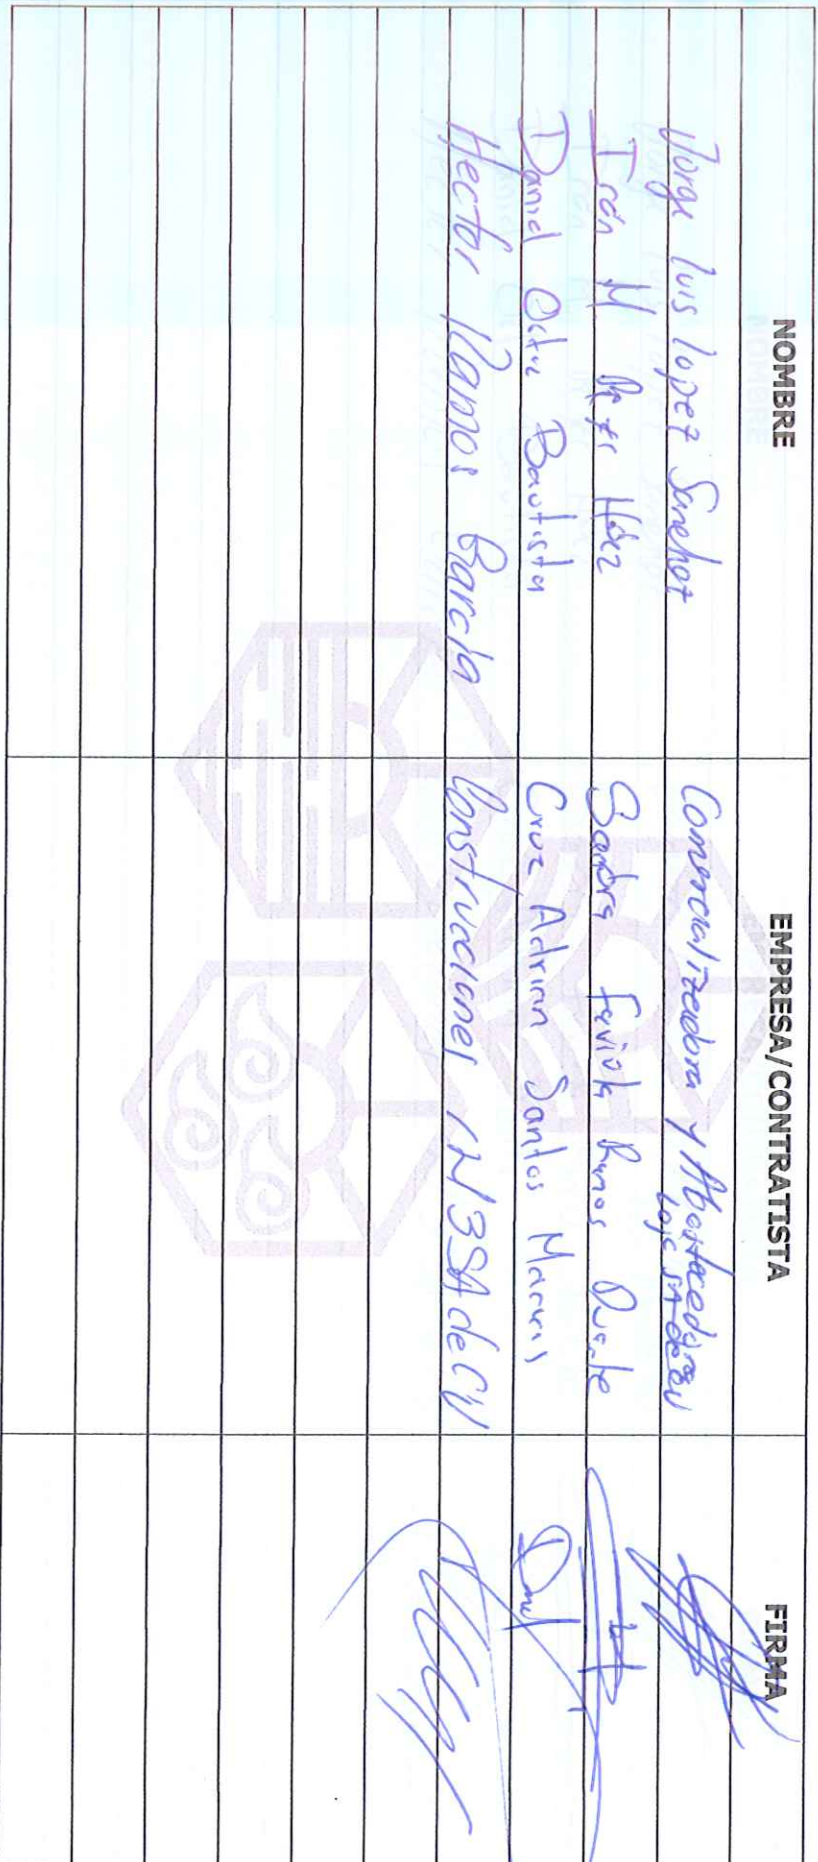 NOMBRE EMPRESA/CONTRATISTA FIRMA
Jorge luis lopez Sanchez Comercializadora y Abastecedora
Loje SA de CV
Irán M Hdez Sandra Faviola Ramos Duarte
Daniel Bautista Cruz Adrian Santos Marcos
Hector Ramos Garcia Construcciones SA de CV